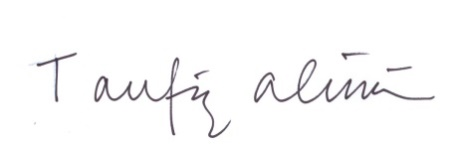 Taufiq alimi